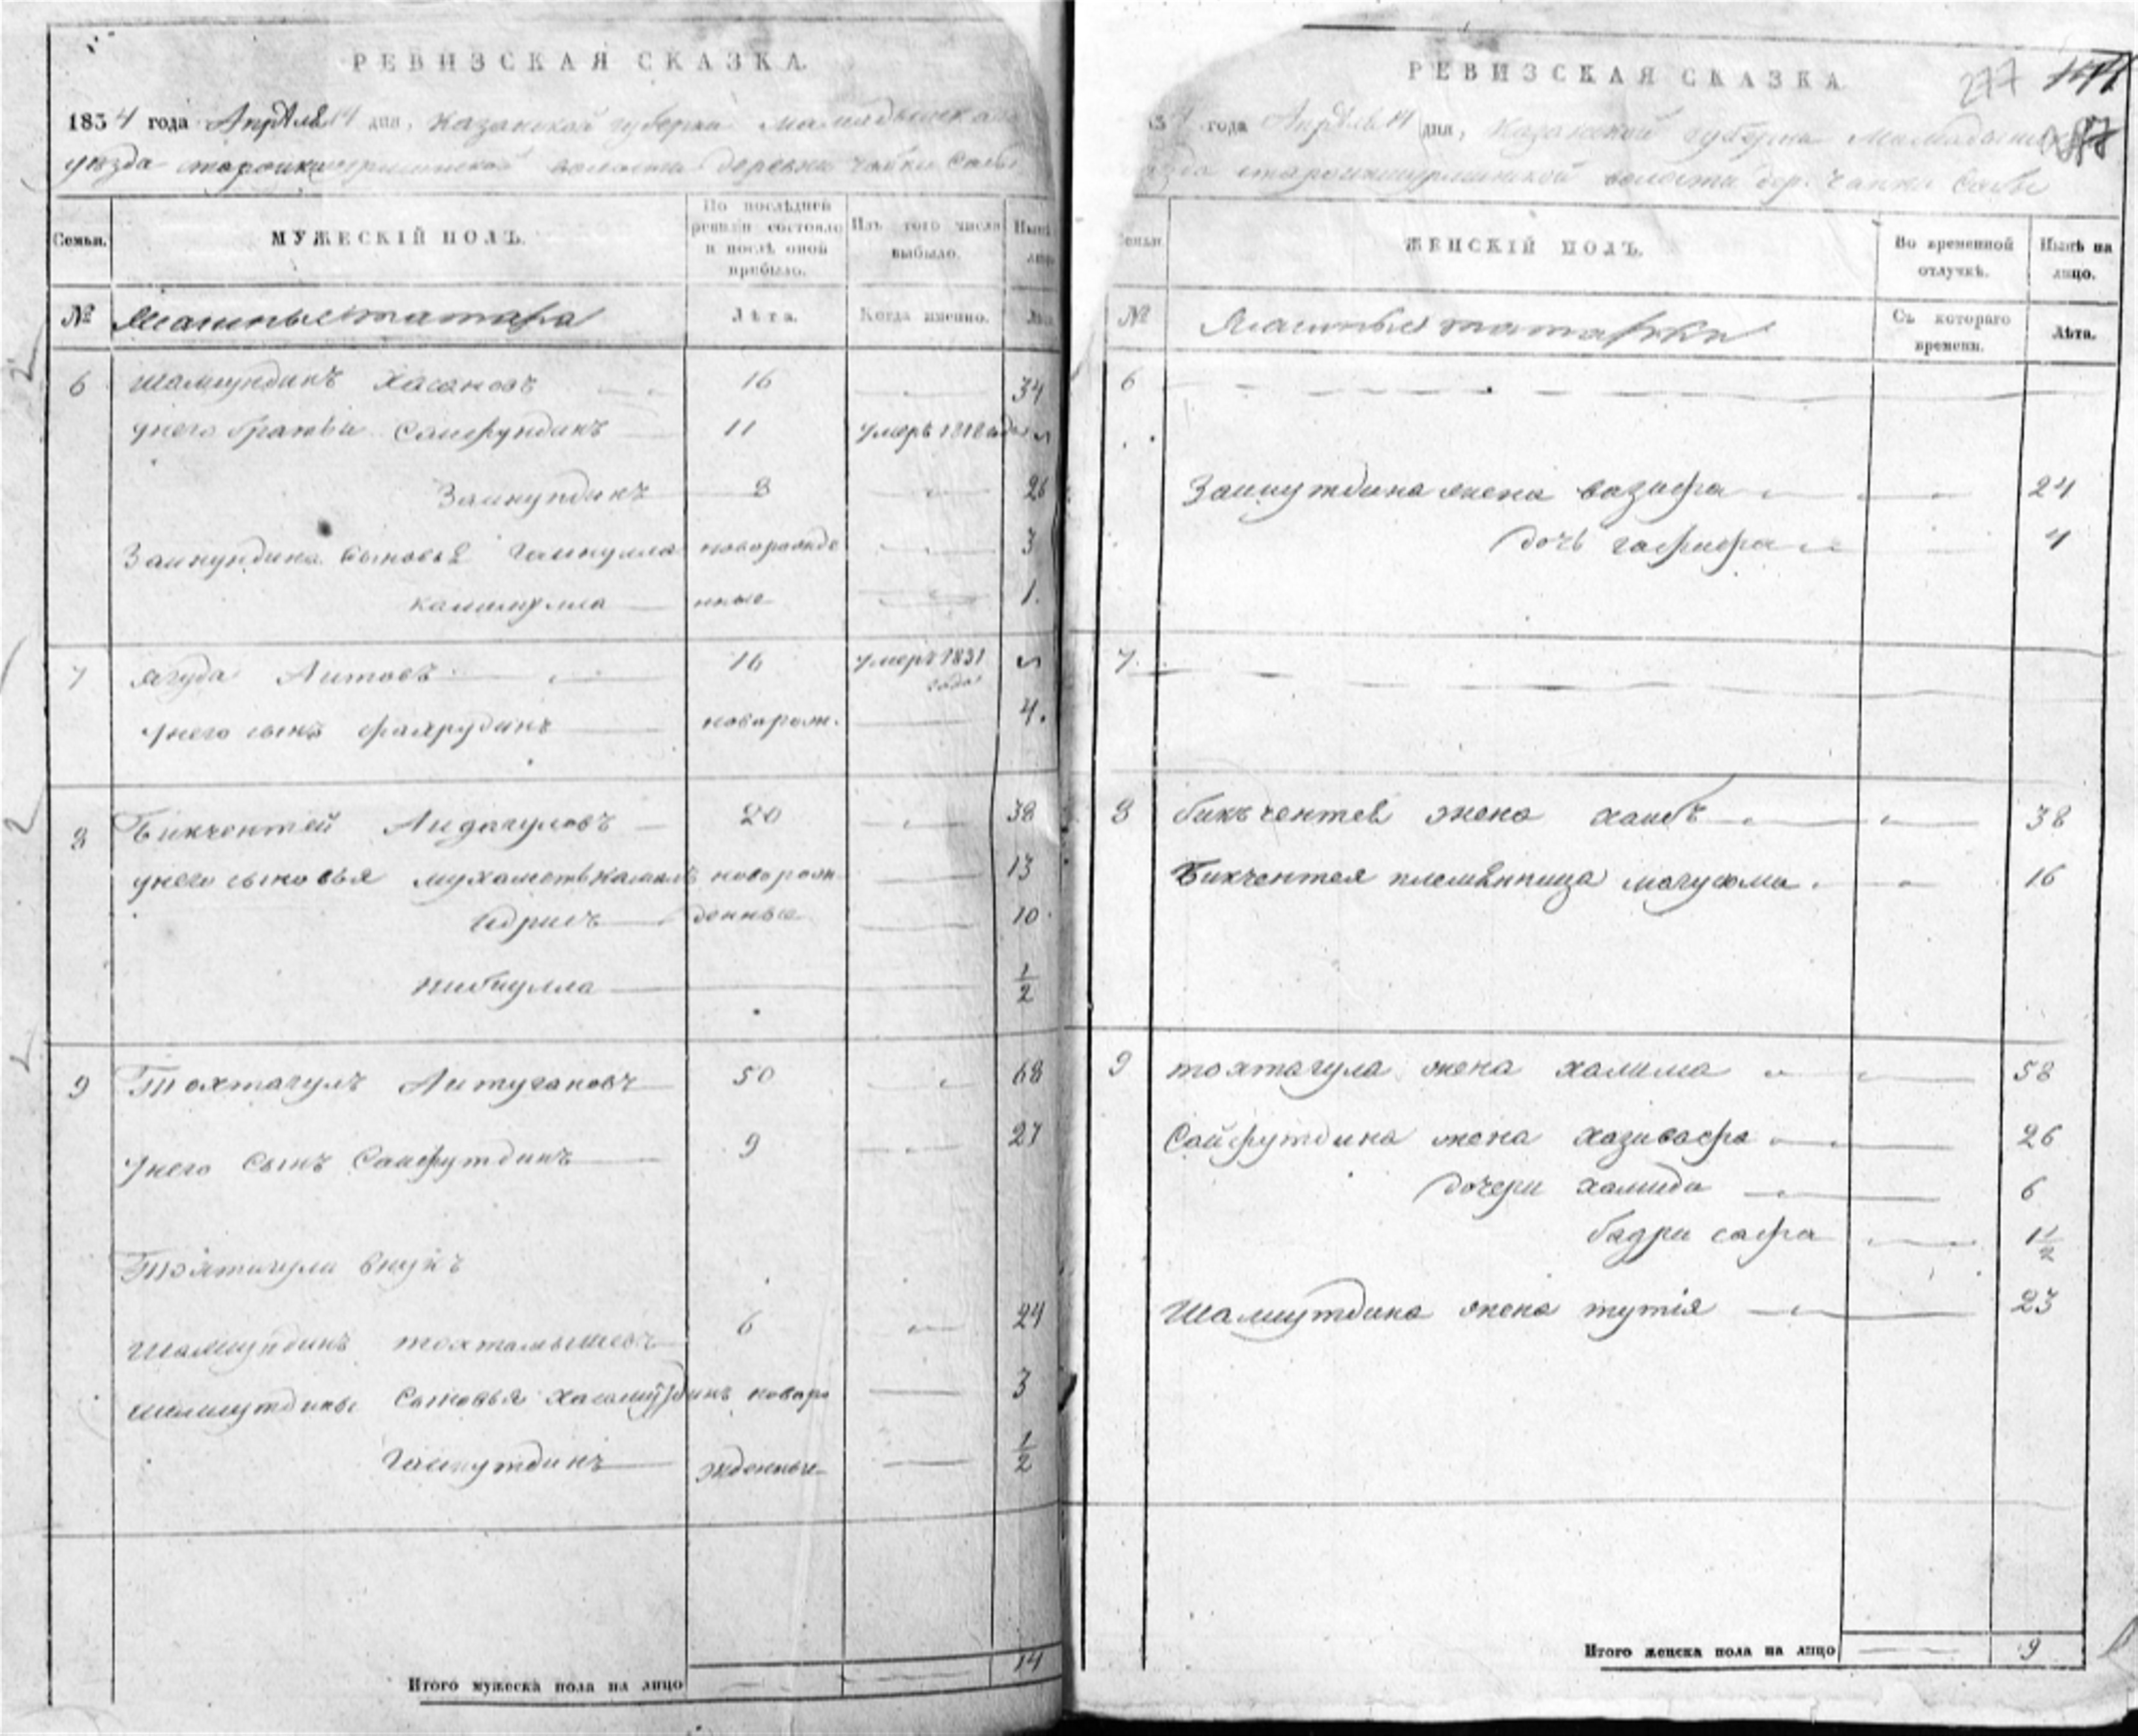 РЕВИЗСКАЯ СКАЗКА.
1834 года Апрѣля 14 дня, Казанской губерни Мамадышскаго
уѣзда староикшурминской волости деревни Чабки Сабы
Семьи.
МУЖЕСКІЙ ПОЛЪ.
По послѣдней ревизіи состояло и послѣ оной прибыло.
Изъ того числа выбыло.
Нынѣ на лицо
№
Ясашные татара
Лѣта.
Когда именно.
Лѣта
6 Шамиундинъ Хасановъ 16 34
унего братьи Сайфундинъ 11 Умеръ 1818 года
Зайнундинъ 8 26
Зайнундина сыновьѣ Гайнулла новорожде 3
калимулла нные 1.
7 Ягуда Аитовъ 16 Умеръ 1831 года
Унего сынъ фахрудинъ новорож. 4.
8 Бикчентей Андагуловъ 20 38
унего сыновья мухаметькамалъ новорож 13
Идрисъ денные 10
нибиулла 1/2
9 Тохтагулъ Аитугановъ 50 68
Унего Сынъ Сайфутдинъ 9 27
Тохтагула внукъ
Шамиундинъ тохтамышевъ 6 24
шамиутдина Сыновья Хисамутдинъ новоро 3
Гайнутдинъ жденные 1/2
Итого мужеска пола на лицо 14
РЕВИЗСКАЯ СКАЗКА
277
34 года Апрѣля 14 дня, Казанской губерни Мамадышскаго
уѣзда староикшурминской волости дер. Чапки Сабы
Семьи
ЖЕНСКІЙ ПОЛЪ.
Во временной отлучкѣ.
Нынѣ на лицо.
№
Ясашные татарки
Съ котораго времени.
Лѣта.
6
Зайнутдина жена вазифа 24
дочь гафифа 4
7.
8 бикъчентея жена хаибъ 38
Бикчентея племянница магузюма 16
9 тохтагула жена халима 58
Сайфутдина жена хазивафа 26
дочери хамида 6
бадри сафа 1 1/2
Шамиутдина жена тутія 23
Итого женска пола на лицо 9